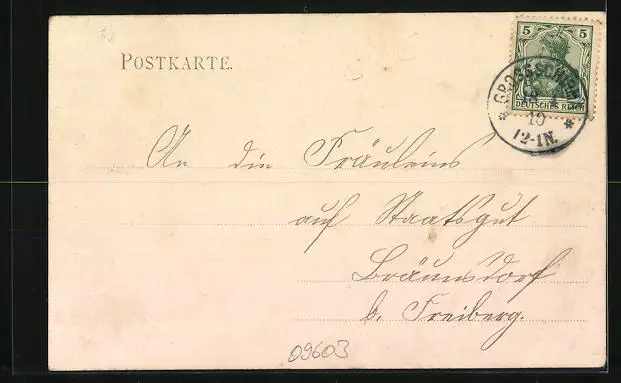 POSTKARTE.
5 5
DEUTSCHES REICH
10
12-1N.
An die Fräuleins
auf Staatsgut
Bräunsdorf
b. Freiberg.
09603